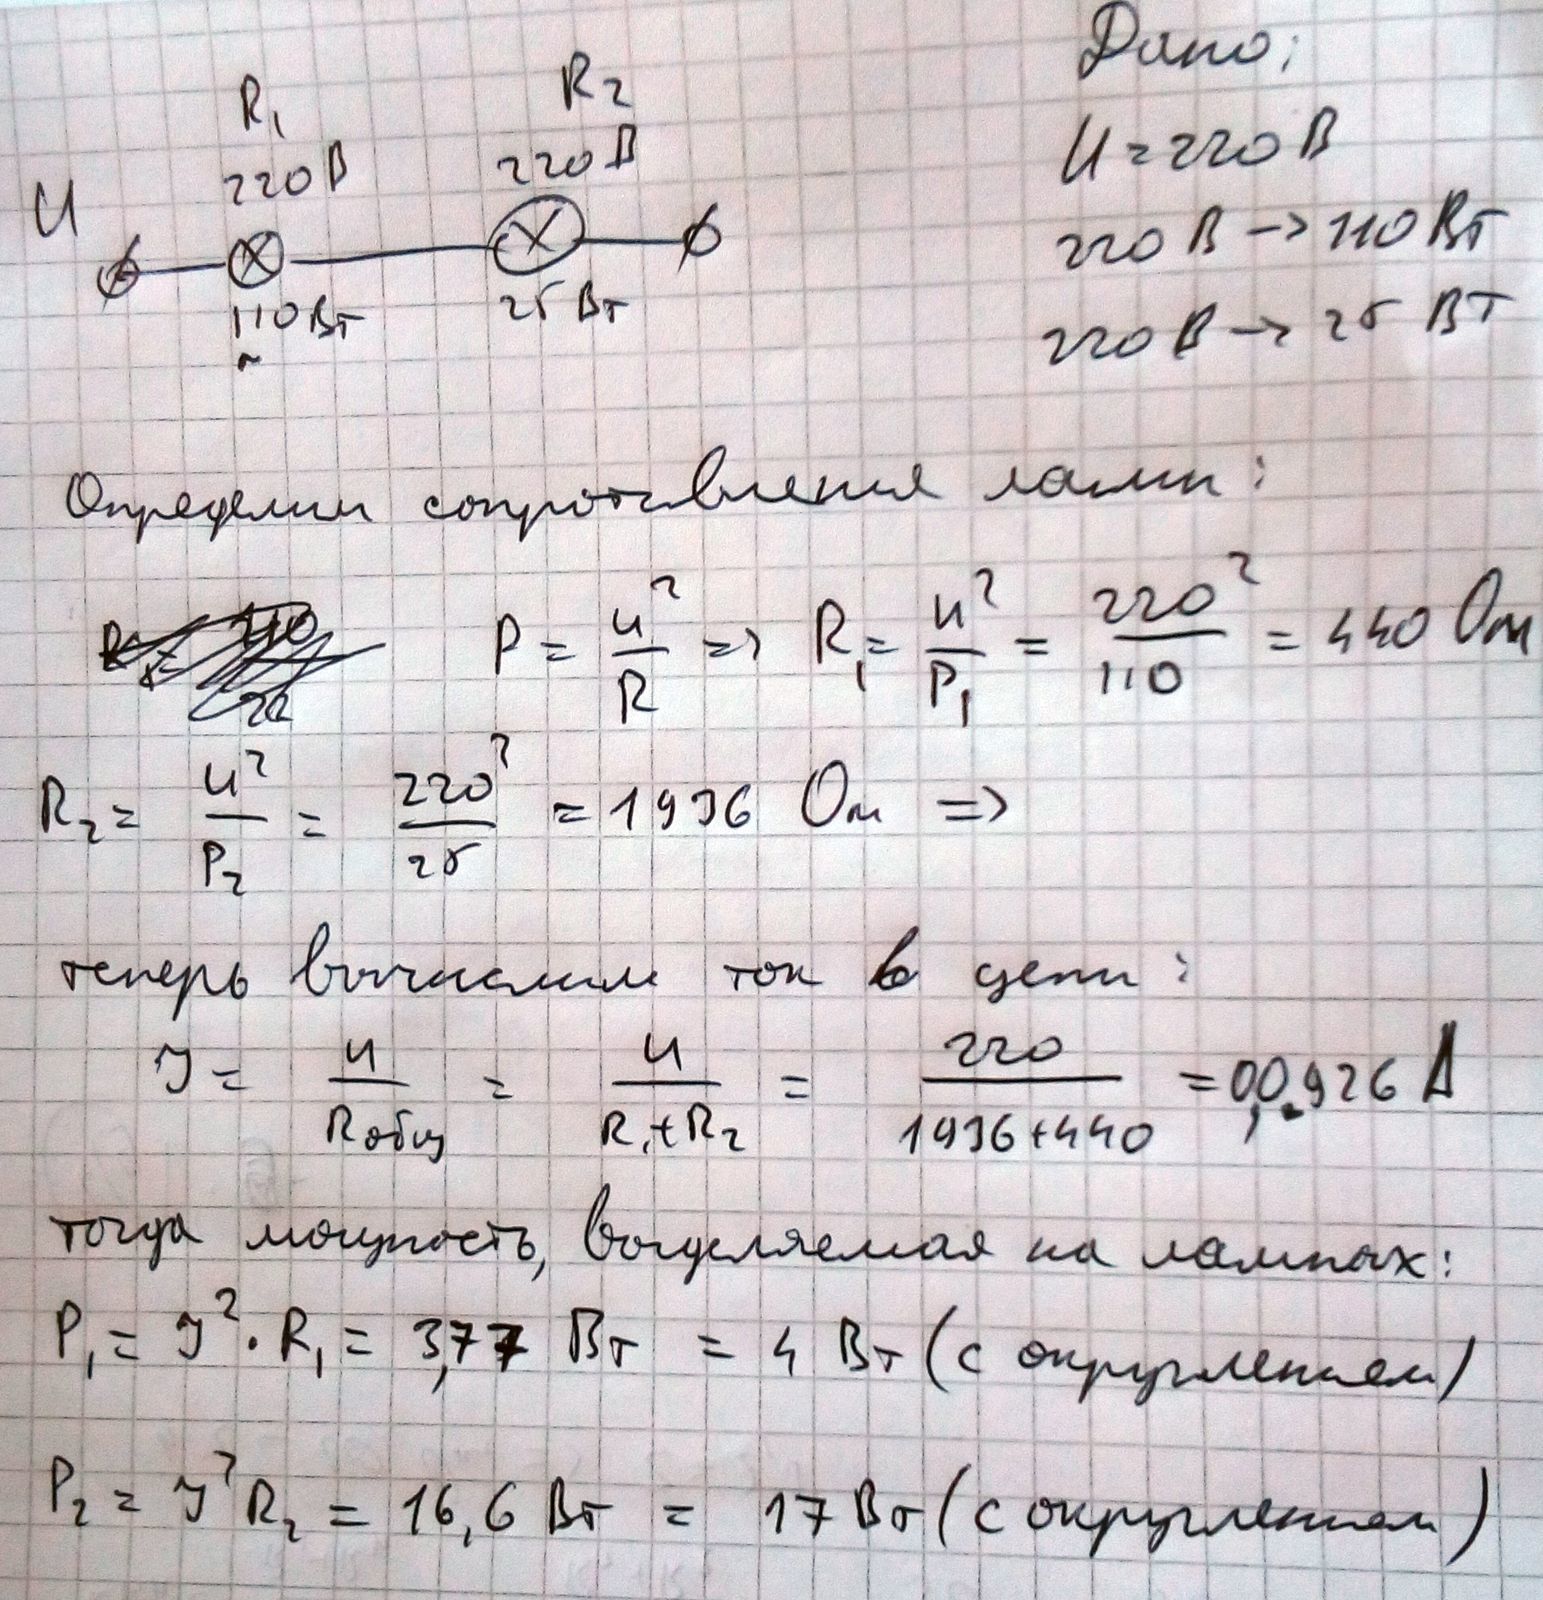 Дано:
U = 220 В
220 В -> 110 Вт
220 В -> 25 Вт
R₁ R₂
220 В 220 В
U
110 Вт 25 Вт
Определим сопротивления ламп:
P = U²/R => R₁ = U²/P₁ = 220²/110 = 440 Ом
R₂ = U²/P₂ = 220²/25 = 1936 Ом =>
теперь вычислим ток в цепи:
I = U/Rобщ = U/(R₁+R₂) = 220/(1936+440) = 0,0926 А
тогда мощность, выделяемая на лампах:
P₁ = I² · R₁ = 3,77 Вт = 4 Вт (с округлением)
P₂ = I² R₂ = 16,6 Вт = 17 Вт (с округлением)